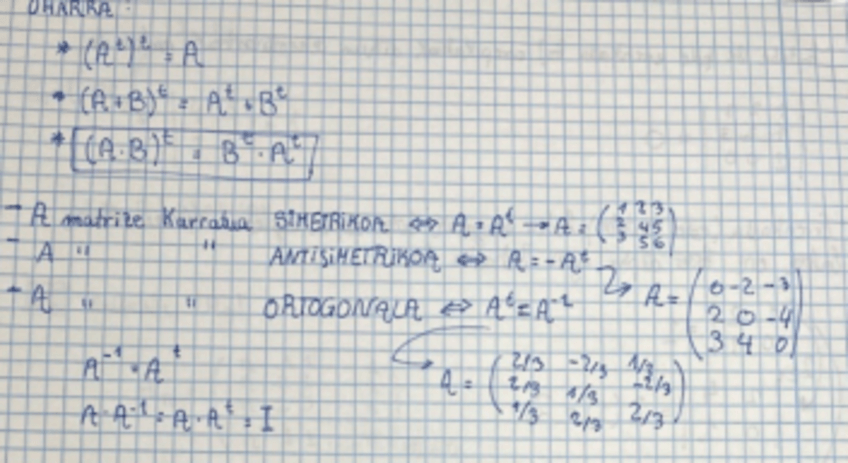 OHARRA:
* (Aᵗ)ᵗ = A
* (A+B)ᵗ = Aᵗ + Bᵗ
* (A·B)ᵗ = Bᵗ · Aᵗ
- A matrize Karratua SIMETRIKOA ⇔ A = Aᵗ → A = (1 2 3
2 4 5
3 5 6)
- A " " ANTISIMETRIKOA ⇔ A = -Aᵗ
→ A = (0 -2 -3
2 0 -4
3 4 0)
- A " " ORTOGONALA ⇔ Aᵗ = A⁻¹
→ A = (2/3 -2/3 1/3
2/3 1/3 -2/3
1/3 2/3 2/3)
A⁻¹ = Aᵗ
A·A⁻¹ = A·Aᵗ = I